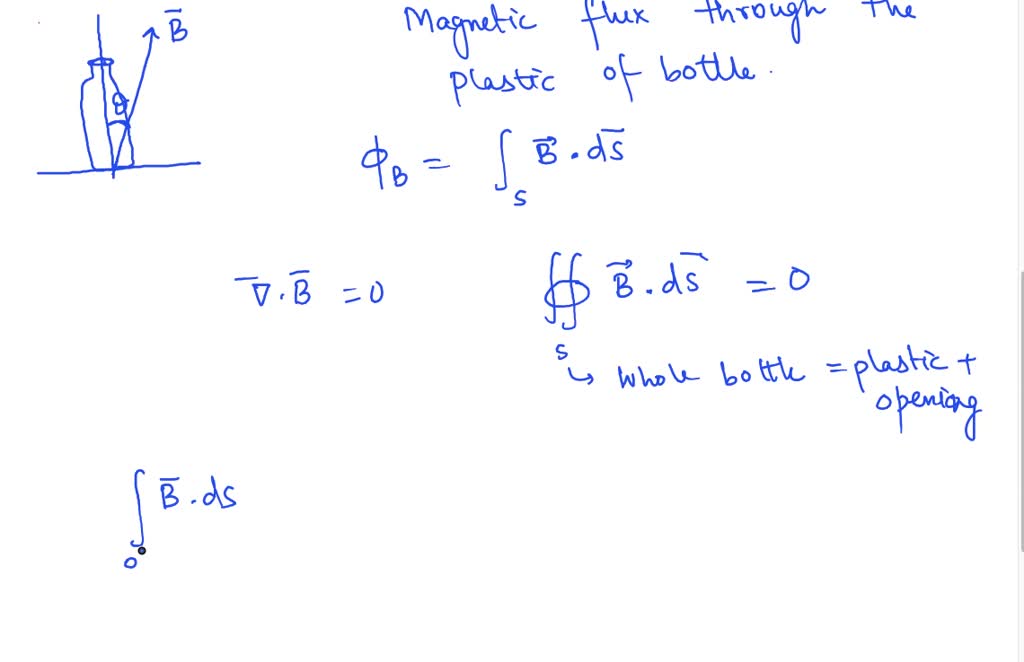 B̅
Magnetic flux through the
plastic of bottle.
θ
ϕ_B = ∫_S B⃗ . ds̅
∇̅ . B̅ = 0
∯_S B⃗ . ds⃗ = 0
↳ whole bottle = plastic +
opening
∫_o B̅ . ds